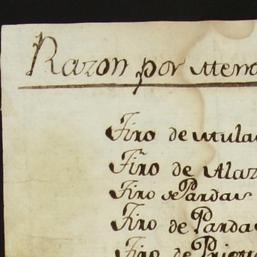 Razon por Meno
Tiro de Mula
Tiro de Alaz
Tiro de Pardas
Tiro de Parda
Tiro de Prieta